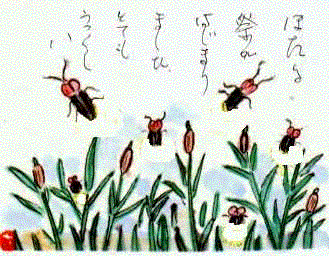 ほたる
祭りが
はじまり
ました
とても
うつくし
い